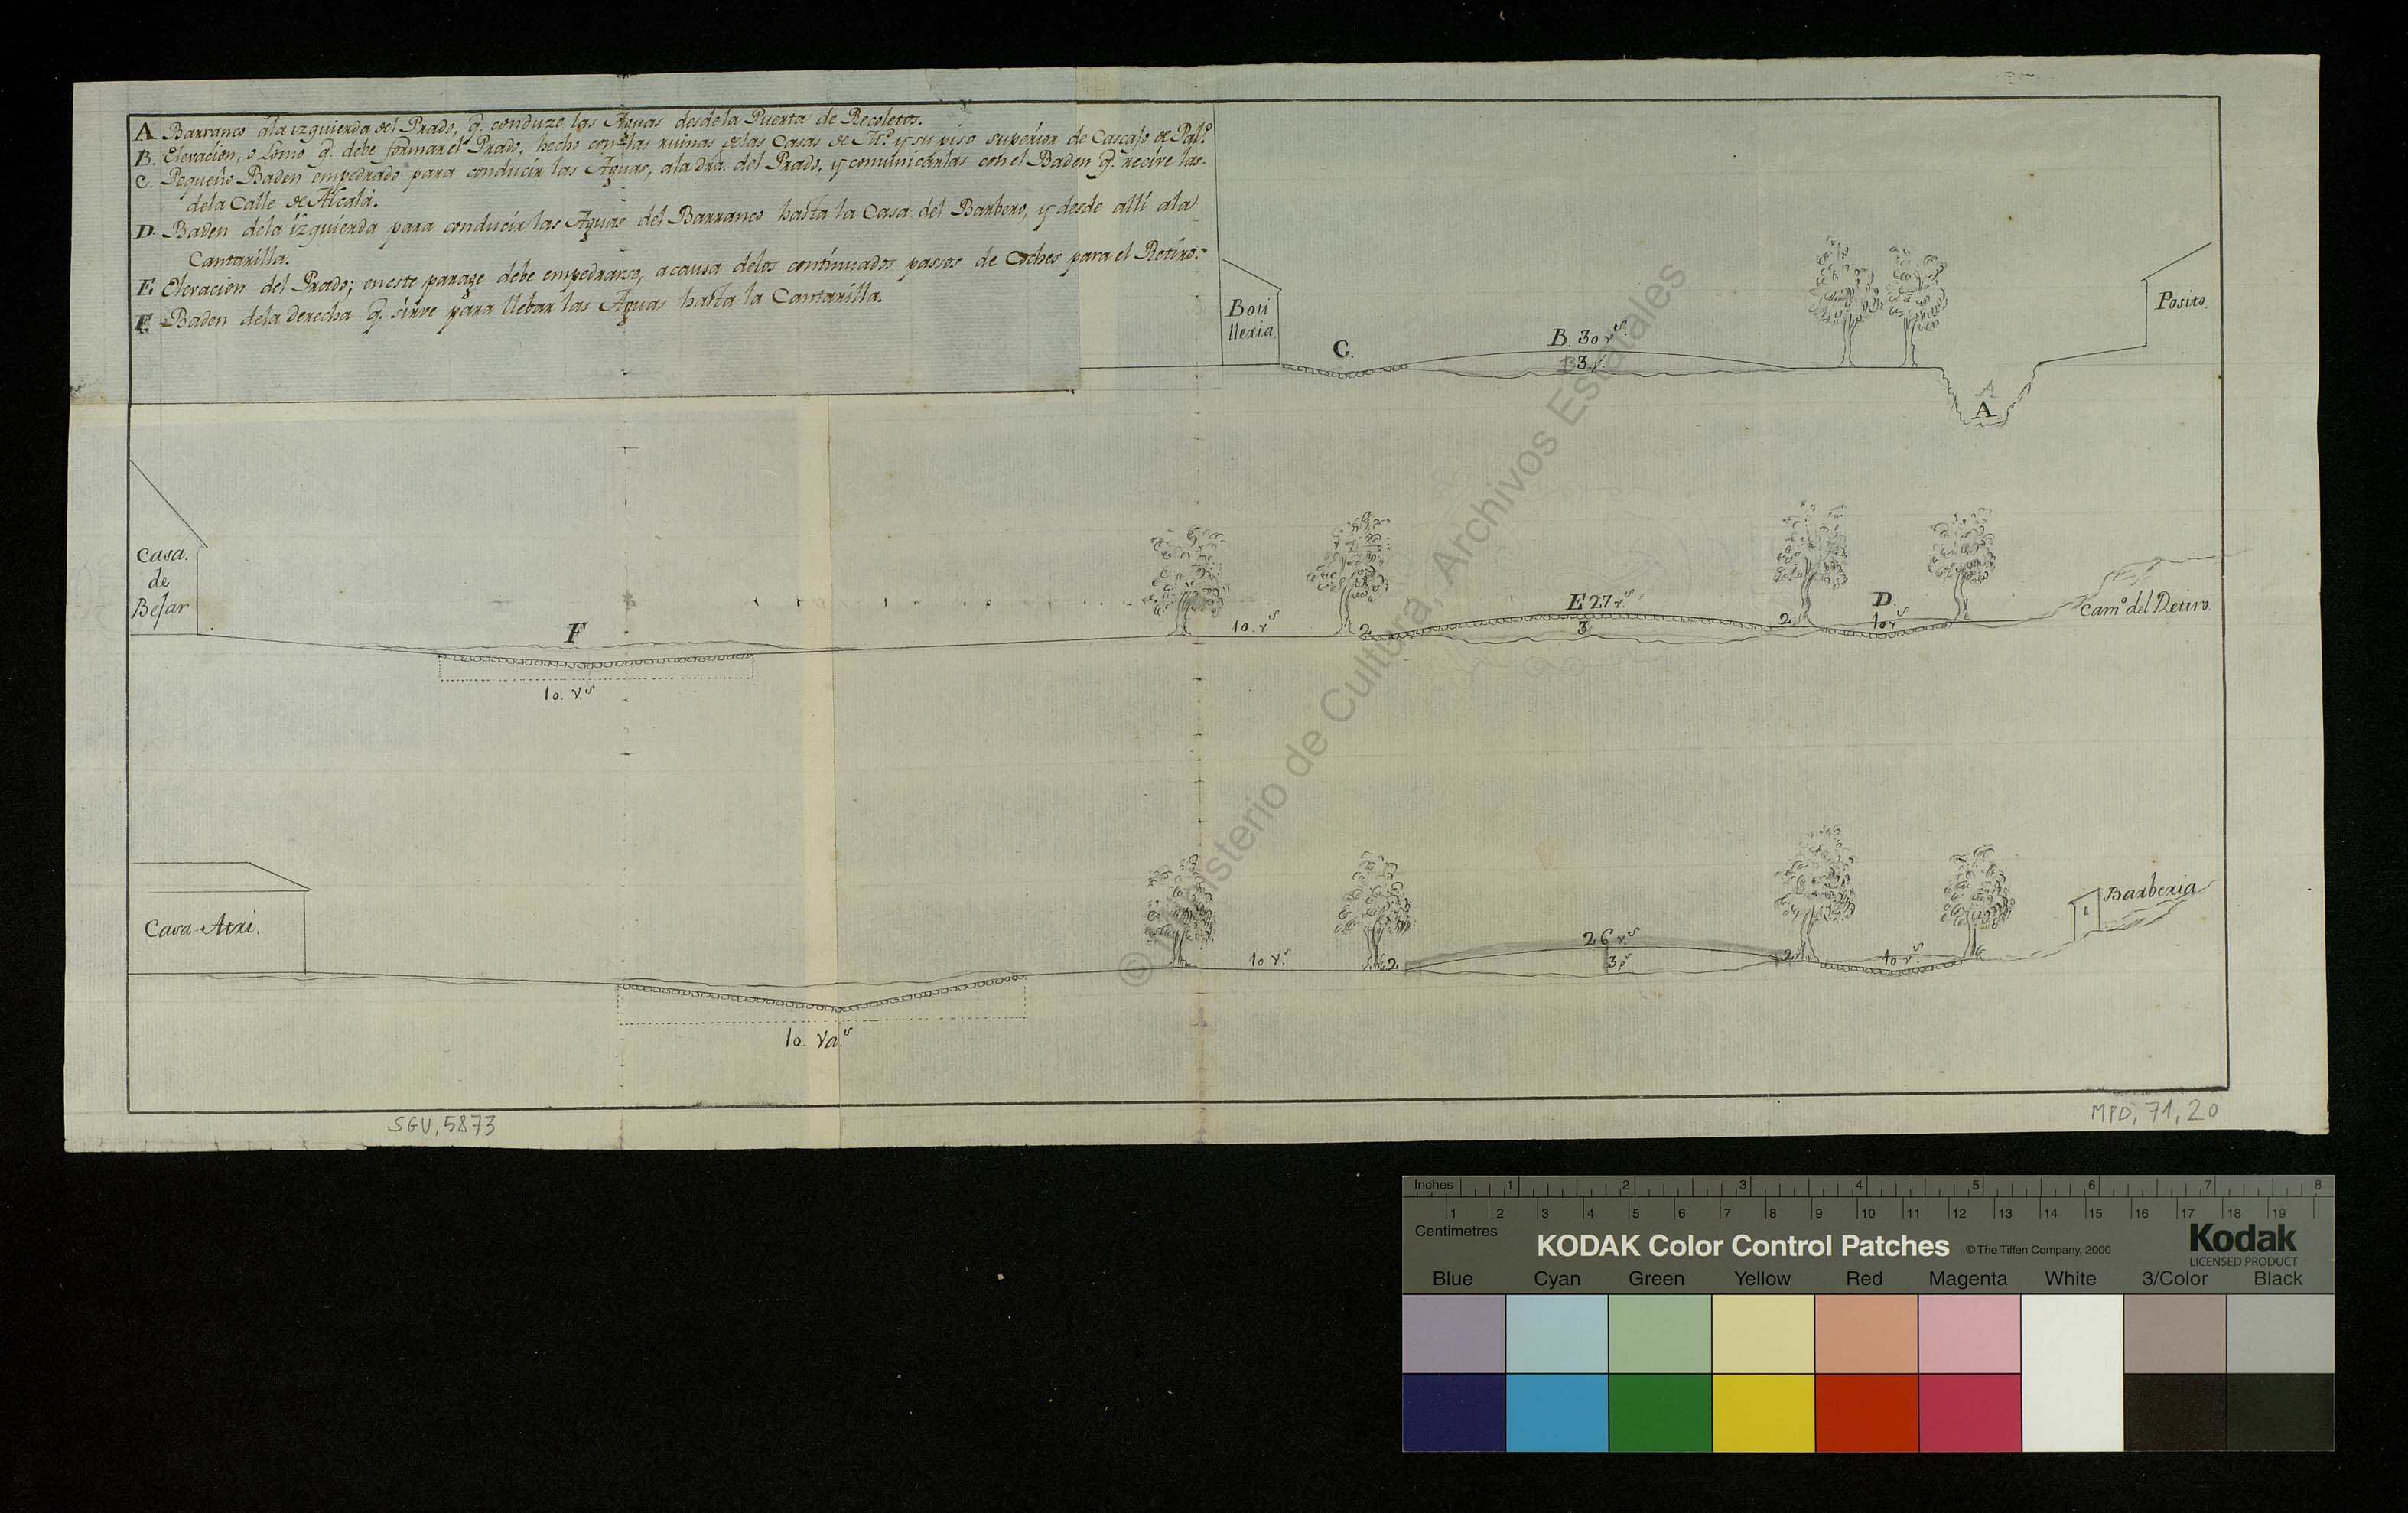 A Barranco ála izquierda del Prado, q.e conduze las Aguas desde la Puerta de Recoletos.
B. Elevación, o Lomo q.e debe formar el Prado, hecho con las ruinas delas Casas de M.d y su piso superior de Cascajo de Pal.o
C. Pequeño Baden empedrado para conducir las Aguas, ala dra. del Prado, y comunicarlas con el Baden q.e recive las
dela Calle de Alcala.
D. Baden dela izquierda para conducir las Aguas del Barranco hasta la Casa del Barbero, y desde alli ala
Cantarilla.
E. Elevacion del Prado; en este parage debe empedrarse, acausa delos continuados passos de Coches para el Retiro.
F. Baden dela derecha q.e sirve para llebar las Aguas hasta la Cantarilla.
Boti
lleria
C.
B. 30 v.s
3. v.
A
A
Posito.
Casa.
de
Bejar
F
10. v.s
10. v.s
2
E 27 v.s
3
2
D.
10 v.s
Cam.o del Retiro.
Casa Atri.
10. va.s
10 v.s
2
26 v.s
3 p.s
2
10 v.s
Barberia
SGU, 5873
MPD, 71, 20
© Ministerio de Cultura, Archivos Estatales
Inches 1 2 3 4 5 6 7 8
1 2 3 4 5 6 7 8 9 10 11 12 13 14 15 16 17 18 19
Centimetres
KODAK Color Control Patches © The Tiffen Company, 2000
Kodak
LICENSED PRODUCT
Blue Cyan Green Yellow Red Magenta White 3/Color Black